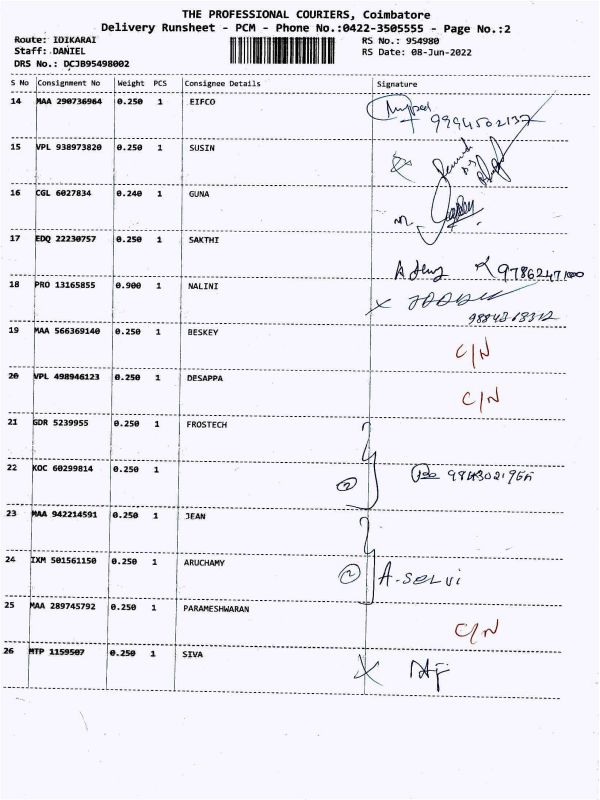 THE PROFESSIONAL COURIERS, Coimbatore
Delivery Runsheet - PCM - Phone No.:0422-3505555 - Page No.:2
Route: IDIKARAI
RS No.: 954980
Staff: DANIEL
RS Date: 08-Jun-2022
DRS No.: DCJB95498002
S No Consignment No Weight PCS Consignee Details Signature
14 MAA 290736964 0.250 1 EIFCO
9994502137
15 VPL 938973820 0.250 1 SUSIN
16 CGL 6027834 0.240 1 GUNA
17 EDQ 22230757 0.250 1 SAKTHI
18 PRO 13165855 0.900 1 NALINI
19 MAA 566369140 0.250 1 BESKEY
C/N
20 VPL 498946123 0.250 1 DESAPPA
C/N
21 GDR 5239955 0.250 1 FROSTECH
22 KOC 60299814 0.250 1
2
23 MAA 942214591 0.250 1 JEAN
24 IXM 501561150 0.250 1 ARUCHAMY
2 A. SELVI
25 MAA 289745792 0.250 1 PARAMESHWARAN
C/N
26 MTP 1159507 0.250 1 SIVA
X